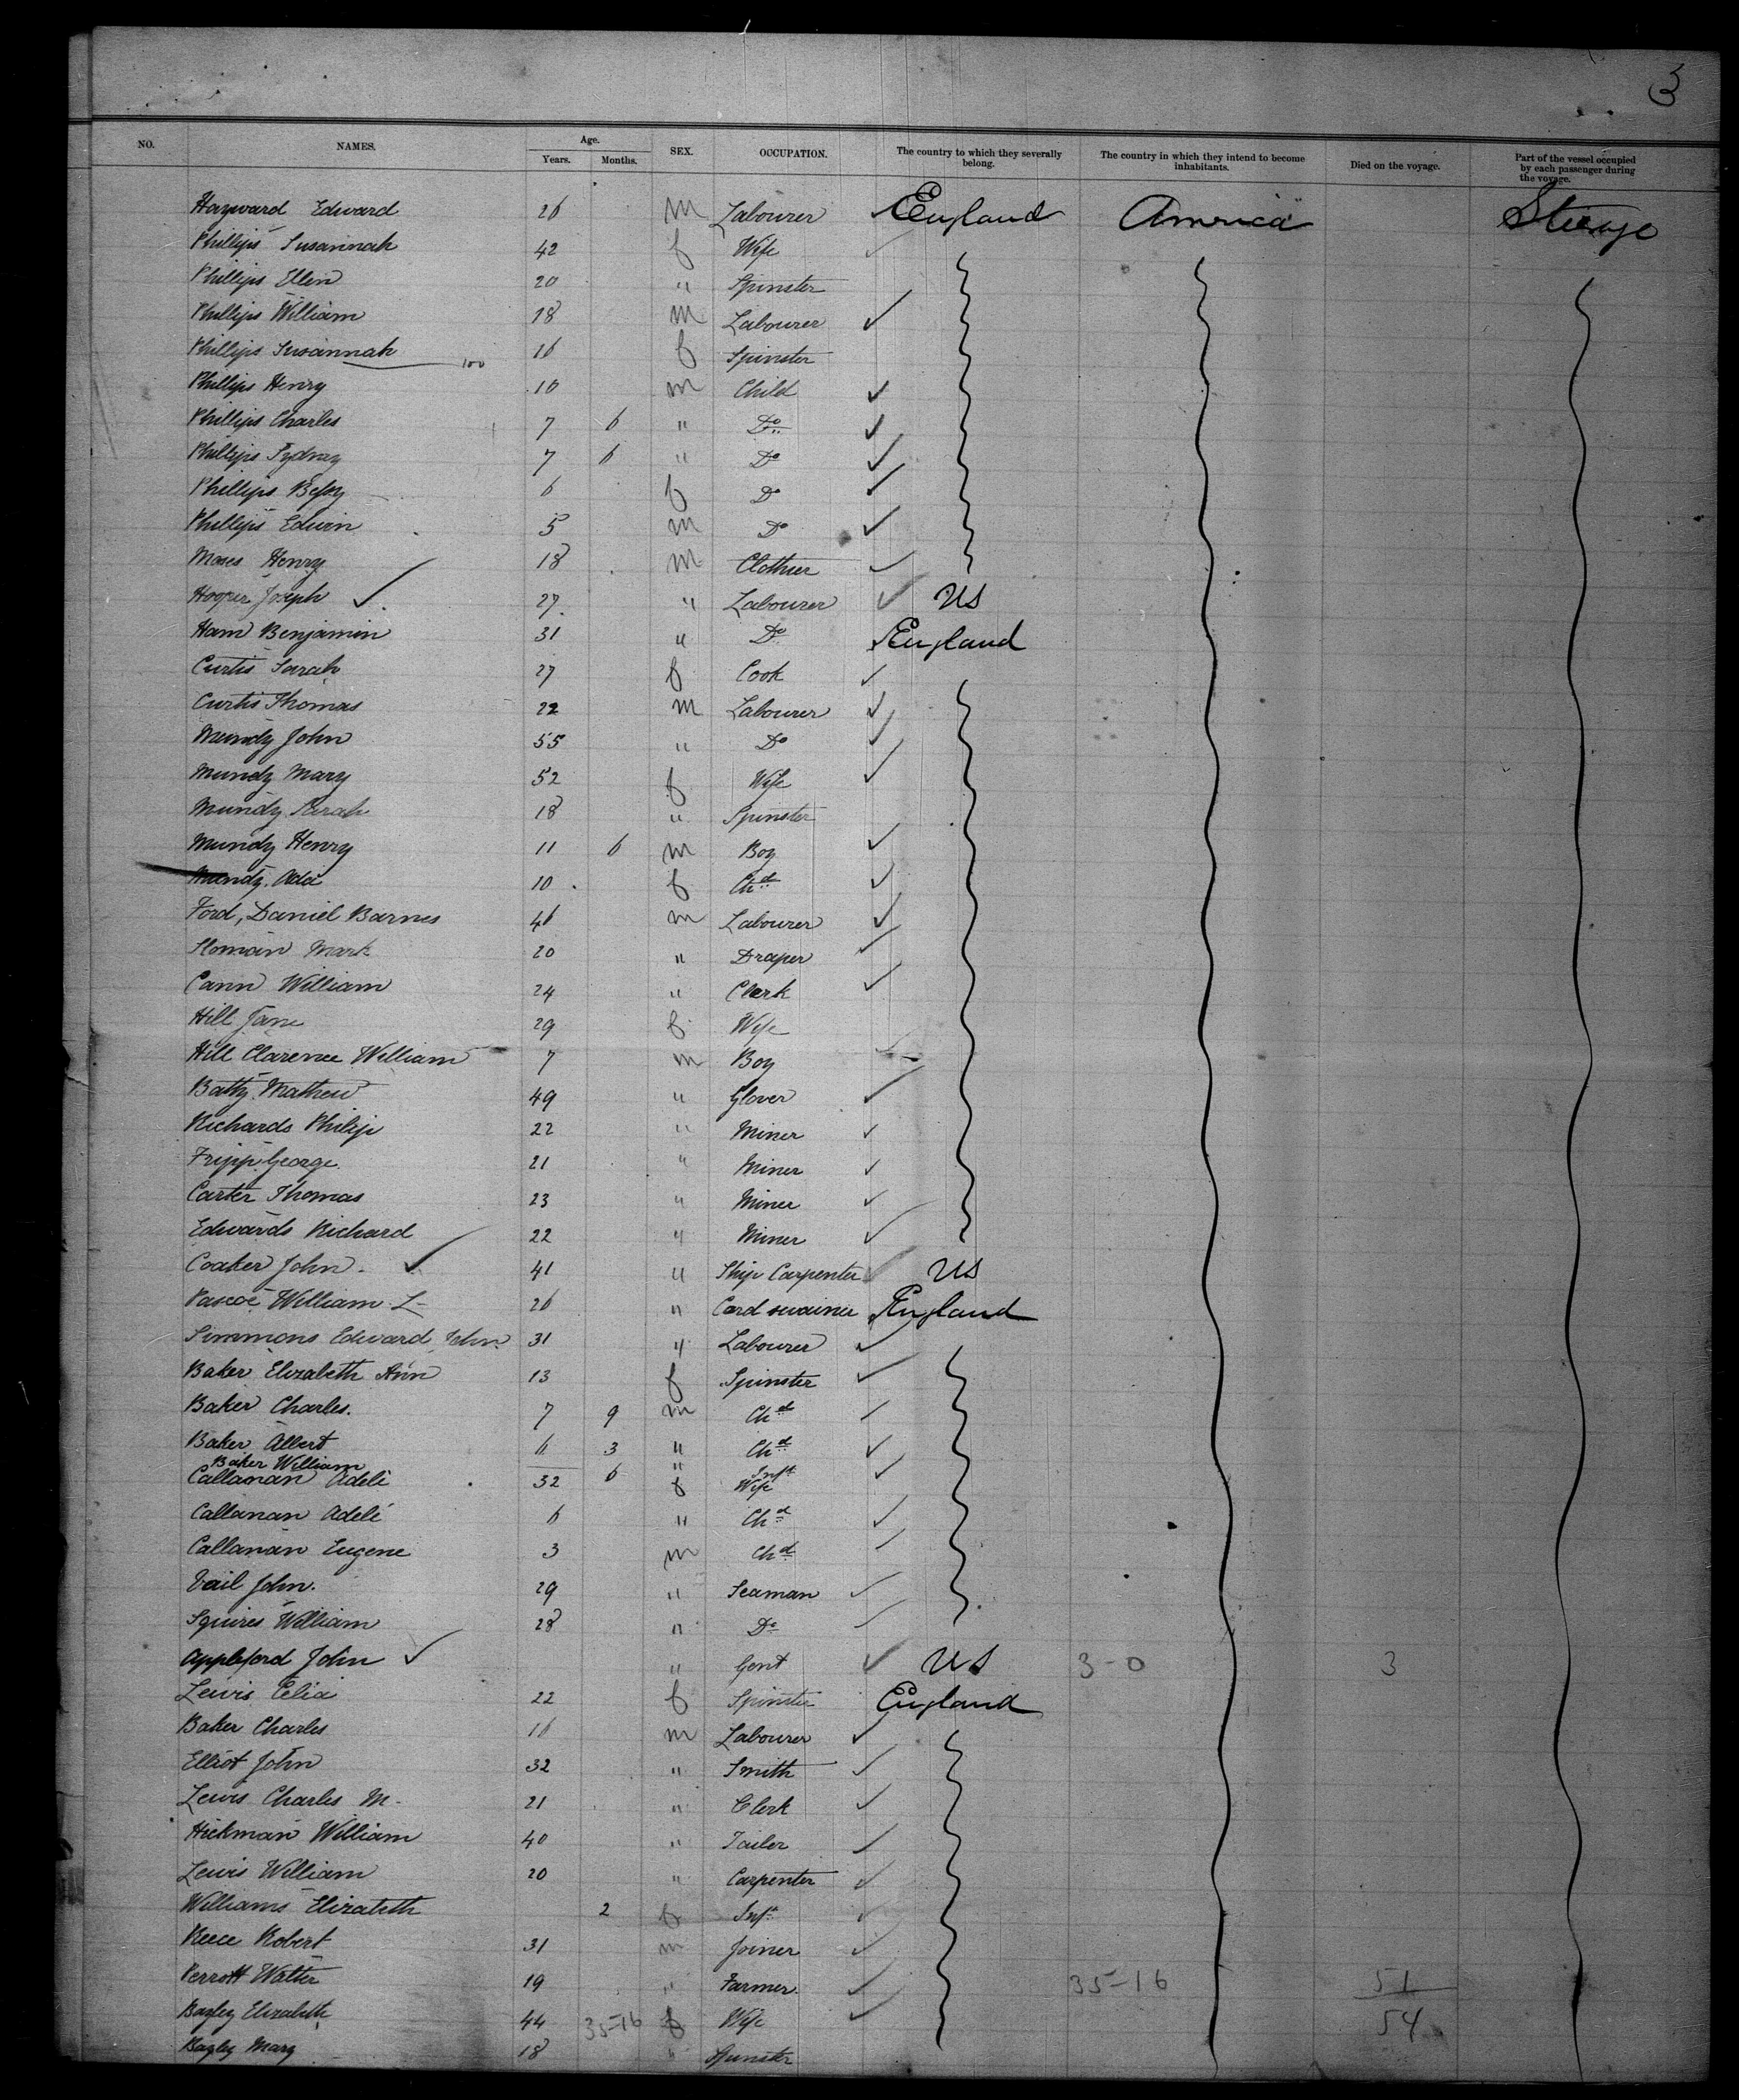 3
NO. NAMES. Age. Years. Months. SEX. OCCUPATION. The country to which they severally belong. The country in which they intend to become inhabitants. Died on the voyage. Part of the vessel occupied by each passenger during the voyage.
Hayward Edward 26 m Labourer England America Steerage
Phillips Susannah 42 f Wife
Phillips Ellen 20 " Spinster
Phillips William 18 m Labourer
Phillips Susannah 100 16 f Spinster
Phillips Henry 10 m Child
Phillips Charles 7 6 " Do
Phillips Sydney 7 6 " Do
Phillips Bessy 6 f Do
Phillips Edwin 5 m Do
Moses Henry 18 m Clothier
Hooper Joseph 27 " Labourer US
Ham Benjamin 31 " Do England
Curtis Sarah 27 f Cook
Curtis Thomas 22 m Labourer
Mundy John 55 " Do
Mundy Mary 52 f Wife
Mundy Sarah 18 " Spinster
Mundy Henry 11 6 m Boy
Mundy Ada 10 f Chd
Ford, Daniel Barnes 46 m Labourer
Sloman Mark 20 " Draper
Cann William 24 " Clerk
Hill Jane 29 f Wife
Hill Clarence William 7 m Boy
Batty Mathew 49 " Glover
Richards Philip 22 " Miner
Fripp George 21 " Miner
Carter Thomas 23 " Miner
Edwards Richard 22 " Miner
Coaker John 41 " Ship Carpenter US
Pascoe William L 26 " Cord England
Simmons Edward John 31 " Labourer
Baker Elizabeth Ann 13 f Spinster
Baker Charles. 7 9 m Chd
Baker Albert 3 " Chd
Baker William 6 " Inft
Callanan Adele 32 f Wife
Callanan Adele 6 " Chd
Callanan Eugene 3 m Chd
Vail John. 29 " Seaman
Squires William 28 " Do
Appleford John " Gent US 3-0 3
Lewis Celia 22 f Spinster England
Baker Charles 16 m Labourer
Elliot John 32 " Smith
Lewis Charles M. 21 " Clerk
Hickman William 40 " Tailer
Lewis William 20 " Carpenter
Williams Elizabeth 2 f Inft
Reece Robert 31 m Joiner
Perrott Walter 19 " Farmer 35-16 51
Bagley Elizabeth 44 35-16 f Wife 54
Bagley Mary 18 " Spinster